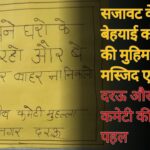 ने घरो के
रहो और वे
र बाहर ना निकले
ीय कमेटी मुहल्ला
नगर दरऊ
सजावट व
बेहयाई क
की मुहिम
मस्जिद ए
दरऊ और
कमेटी की
पहल